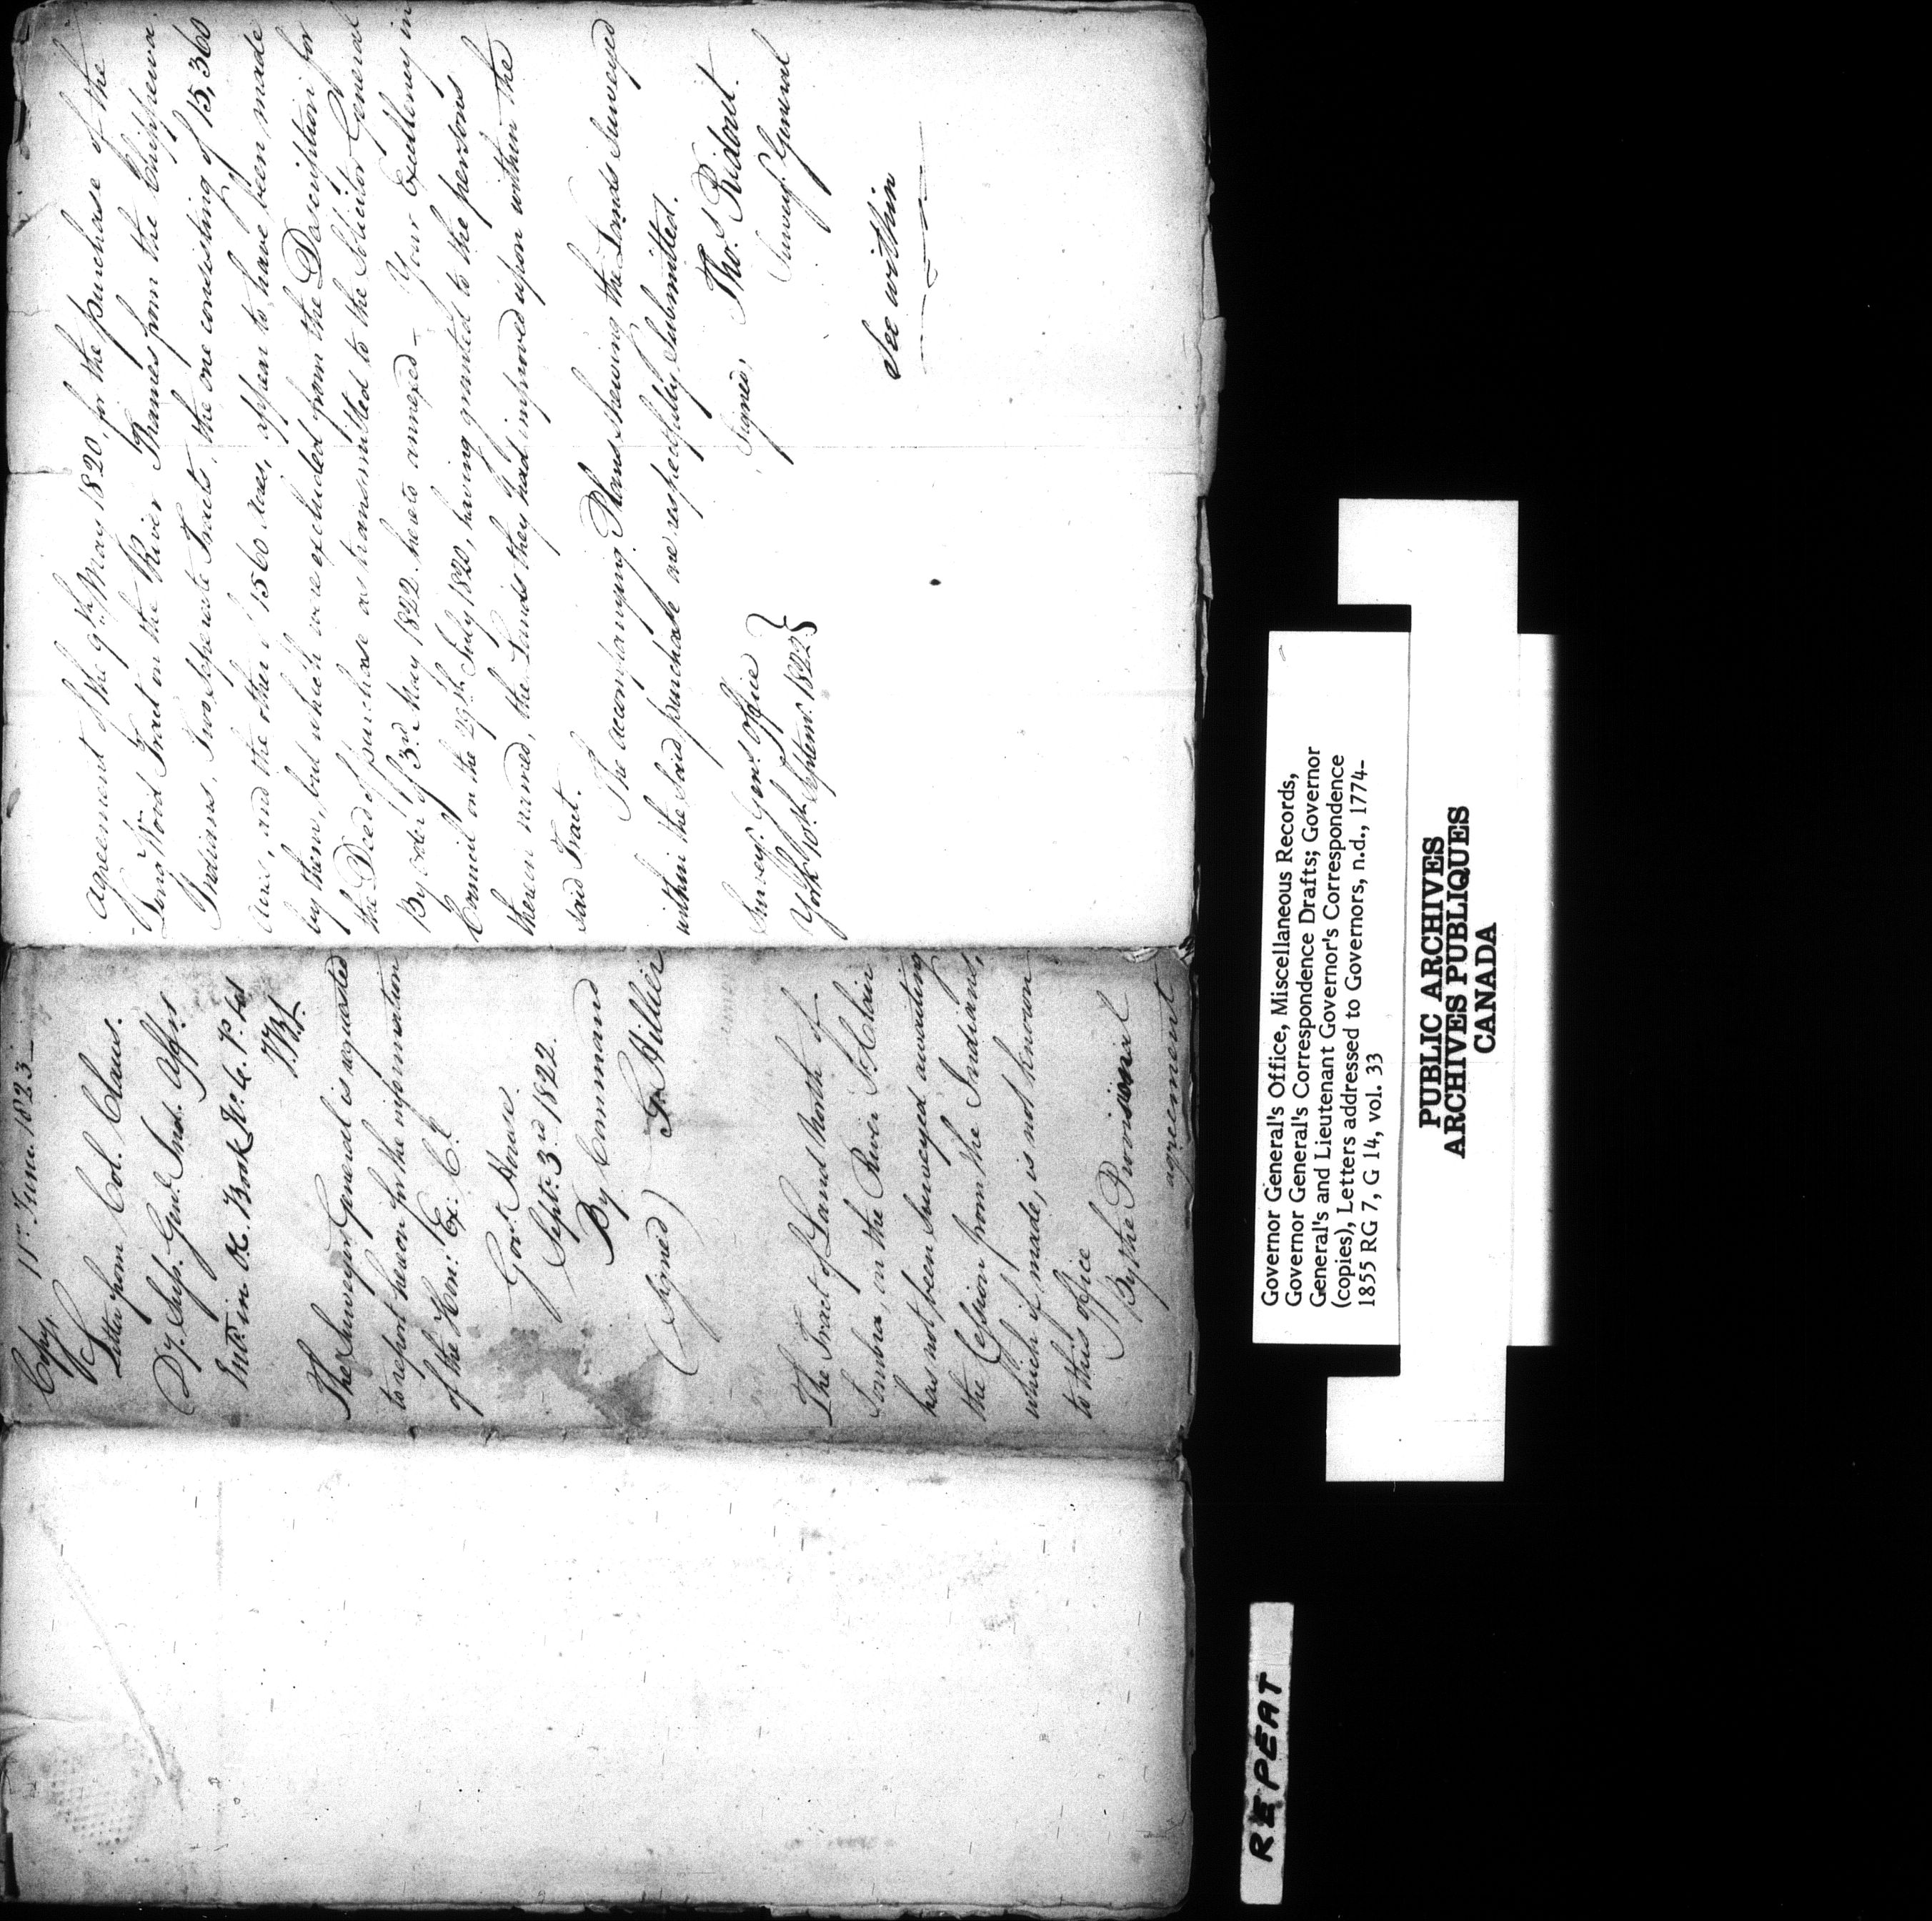 Copy, 11th June 1823
Letter from Col. Claus.
Dy. Sup. Genl. Indn. Affrs
Entd. in
The Surveyor General is requested
to report hereon for the information
of the Hon: Ex: Cl.
Govt. House.
Septr. 3rd 1822.
By Command
(Signed) G. Hillier
The Tract of Land North of
Sombra, on the River St. Clair
has not been surveyed awaiting
the Cession from the Indians,
which if made, is not known
to this office
By the Provisional
agreement
agreement of the 9th. May 1820, for the purchase of the
Long Wood Tract on the River Thames from the Chippewa
Indians, Two seperate Tracts, the one consisting of 15,360
acres, and the other of 1560 acres, appear to have been made
by them, but which were excluded from the Description for
the Deed of purchase as transmitted to the Solicitor General
By order of 3rd. May 1822 hereto annexed - Your Excellency in
Council on the 29th. July 1820, having granted to the persons
therein named, the Lands they had improved upon within the
said Tract.
The accompanying Plans shewing the Lands Surveyed
within the Said purchase are respectfully Submitted.
Signed, Thos. Ridout.
Surveyr. General
Surveyr. Genls. Office }
York 10th. Septemr. 1822
See within
Governor General's Office, Miscellaneous Records,
Governor General's Correspondence Drafts; Governor
General's and Lieutenant Governor's Correspondence
(copies), Letters addressed to Governors, n.d., 1774-
1855 RG 7, G 14, vol. 33
PUBLIC ARCHIVES
ARCHIVES PUBLIQUES
CANADA
REPEAT